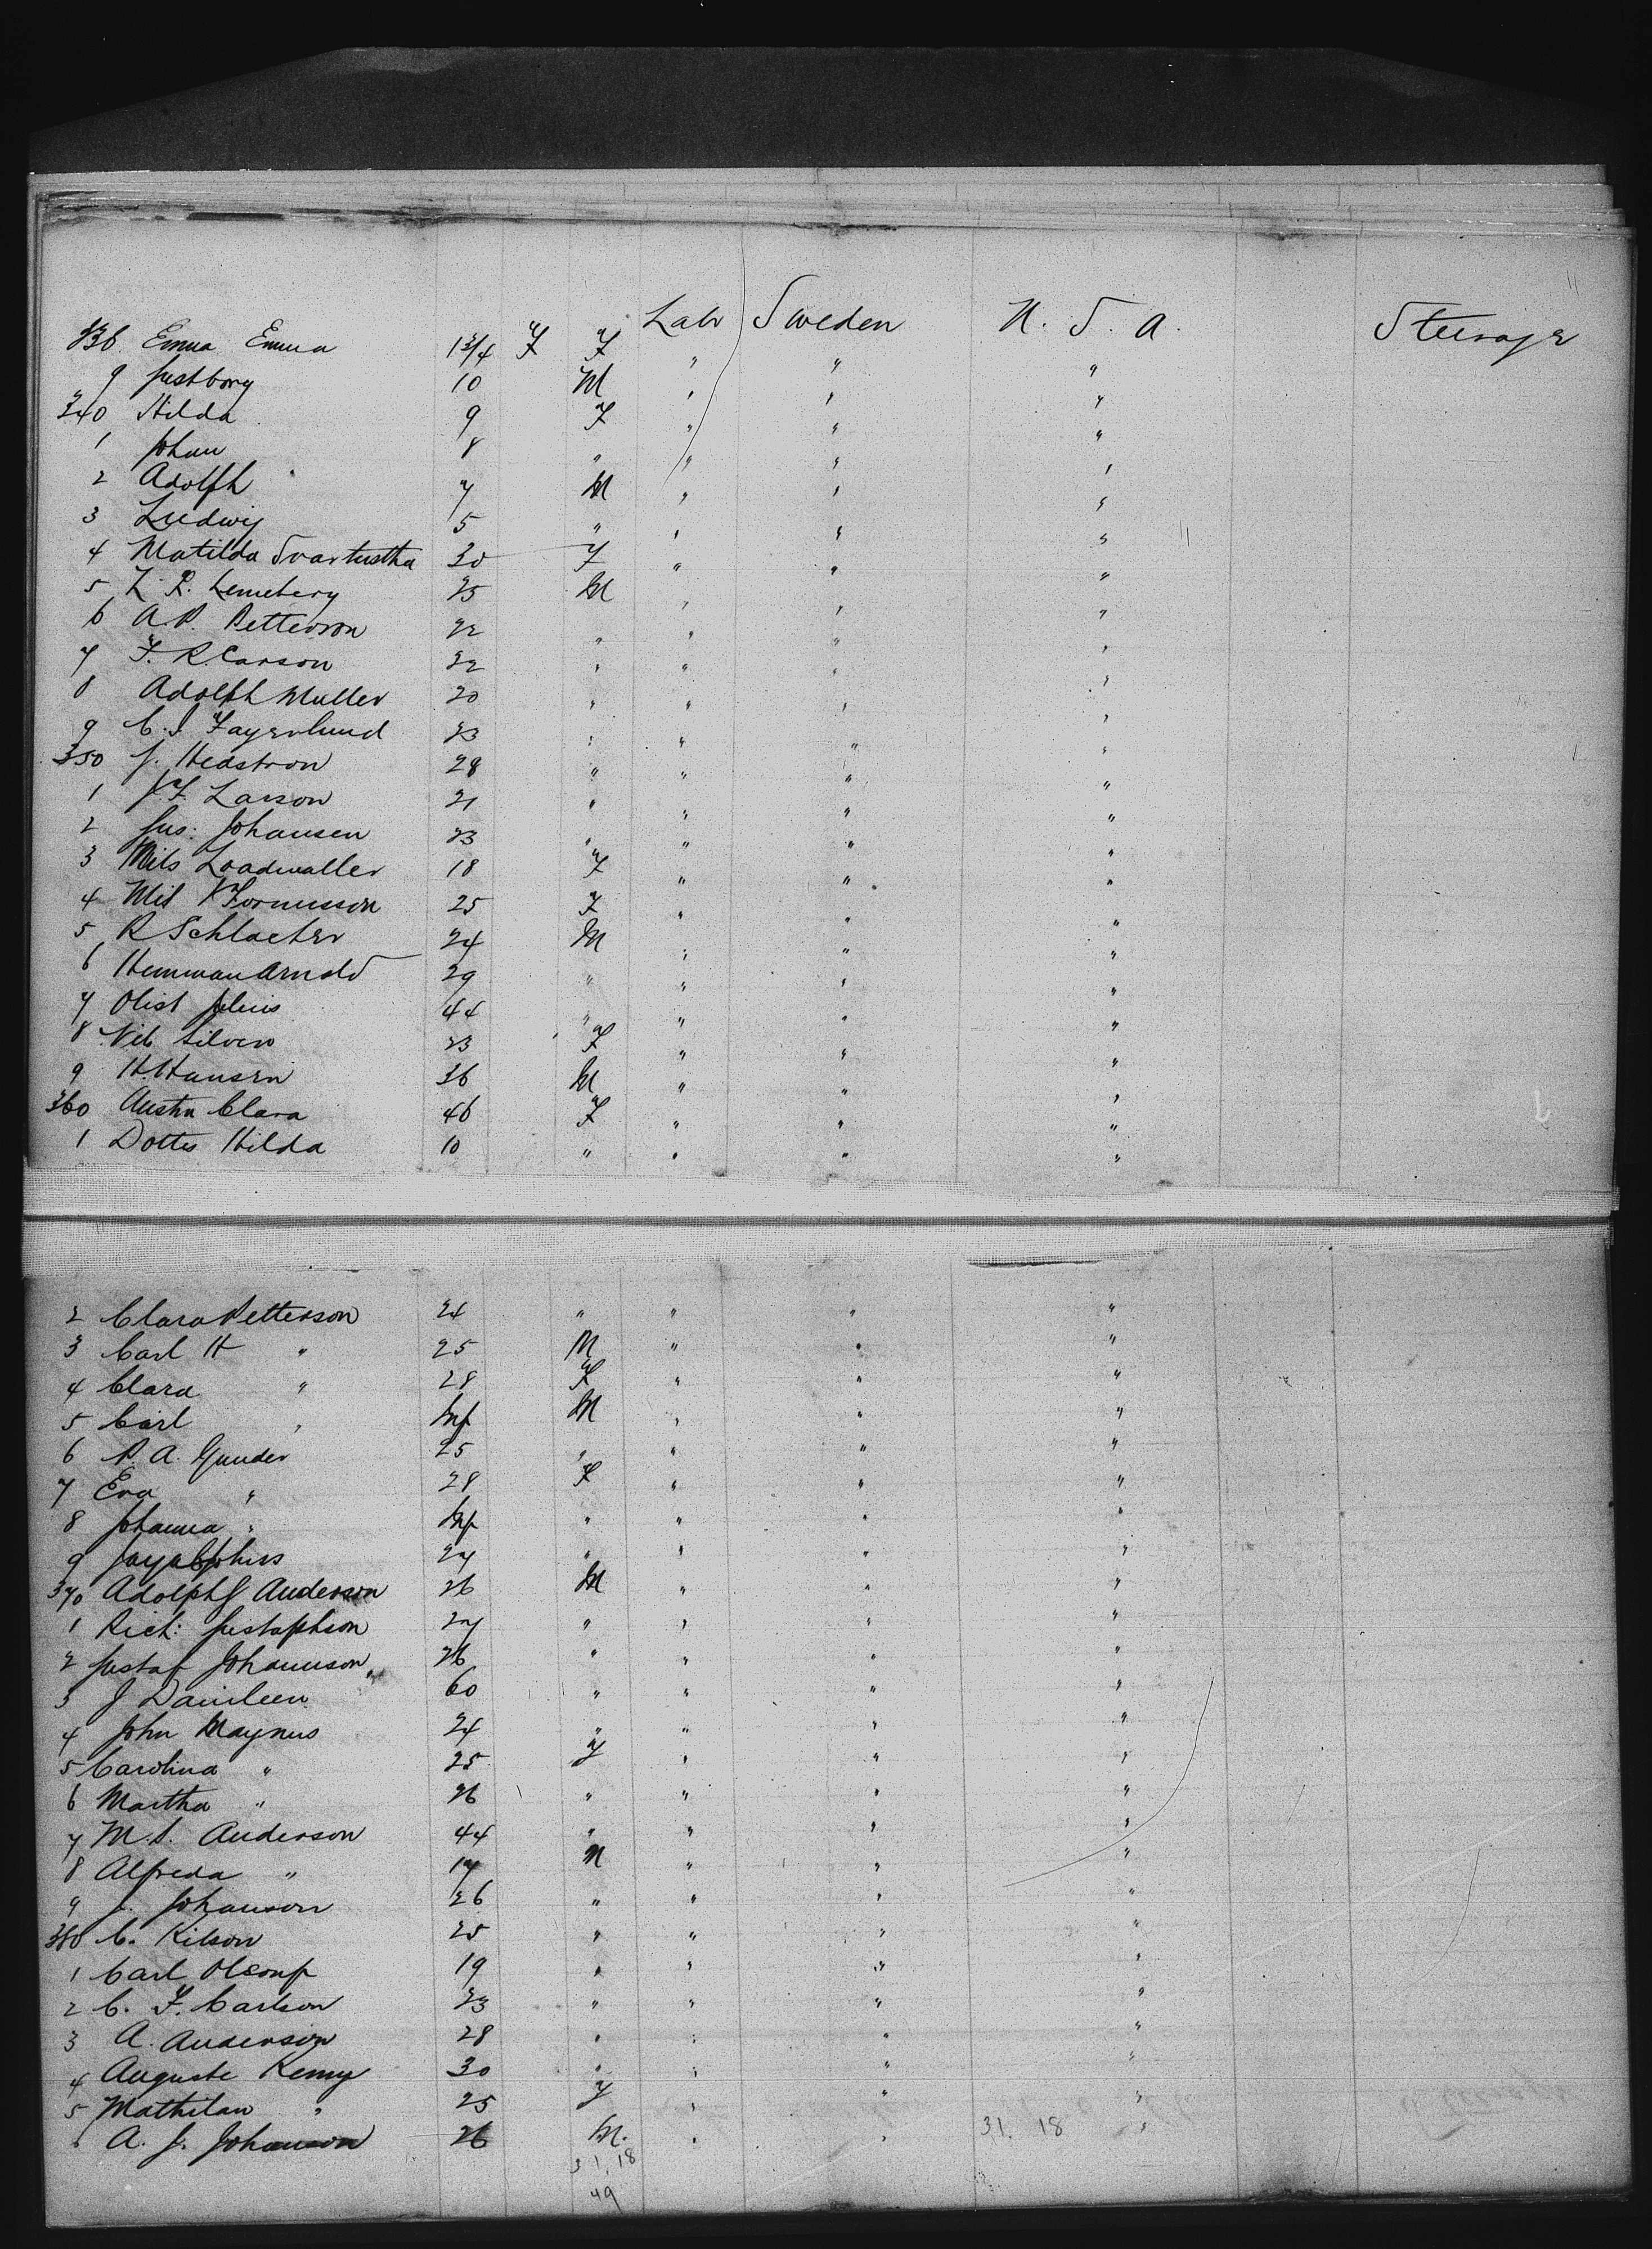 Lab Sweden U. S. A. Steerage
338 Emma Emma 1 3/4 F F " " "
9 Gustborg 10 M " " "
340 Hilda 9 F " " "
1 Johan 8 " " " "
2 Adolph 7 M " " "
3 Ludwig 5 " " " "
4 Matilda 30 F " " "
5 25 M " " "
6 A. P. Petterson 22 " " " "
7 F. R. Carson 22 " " " "
8 Adolph Muller 20 " " " "
9 C. J. Fagerlund 23 " " " "
350 J. Hedstron 28 " " " "
1 J. F. Larson 21 " " " "
2 Gus: Johansen 23 " " " "
3 Nils 18 F " " "
4 25 F " " "
5 R Schlacter 24 M " " "
6 Hermman Arnold 29 " " " "
7 Olist Julius 44 " " " "
8 23 F " " "
9 H. Hansen 36 M " " "
360 Austin Clara 46 F " " "
1 Dottes Hilda 10 " " " "
2 Clara Petterson 24 " " " "
3 Carl H " 25 M " " "
4 Clara " 28 F " " "
5 Carl " Inf M " " "
6 P. A. Gunder 25 " " " "
7 Eva " 28 F " " "
8 Johanna " Inf " " " "
9 27 " " " "
370 Adolph G Anderson 26 M " " "
1 Rich: Gustaphson 27 " " " "
2 Gustaf Johannson 26 " " " "
3 J 60 " " " "
4 John Magnus 24 " " " "
5 Carolina " 25 F " " "
6 Martha " 26 " " " "
7 M. S. Anderson 44 " " " "
8 Alfreda " 17 M " " "
9 J. Johanson 26 " " " "
380 C. Kilson 25 " " " "
1 Carl 19 " " " "
2 C. F. Carlson 23 " " " "
3 A. Anderson 28 " " " "
4 Auguste Kemy 30 " " " "
5 Mathilan " 25 F " " "
6 A. J. Johanson 26 M. " " "
31. 18
31. 18
49